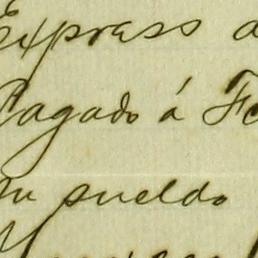 Express a
Pagado á Fe
su sueldo